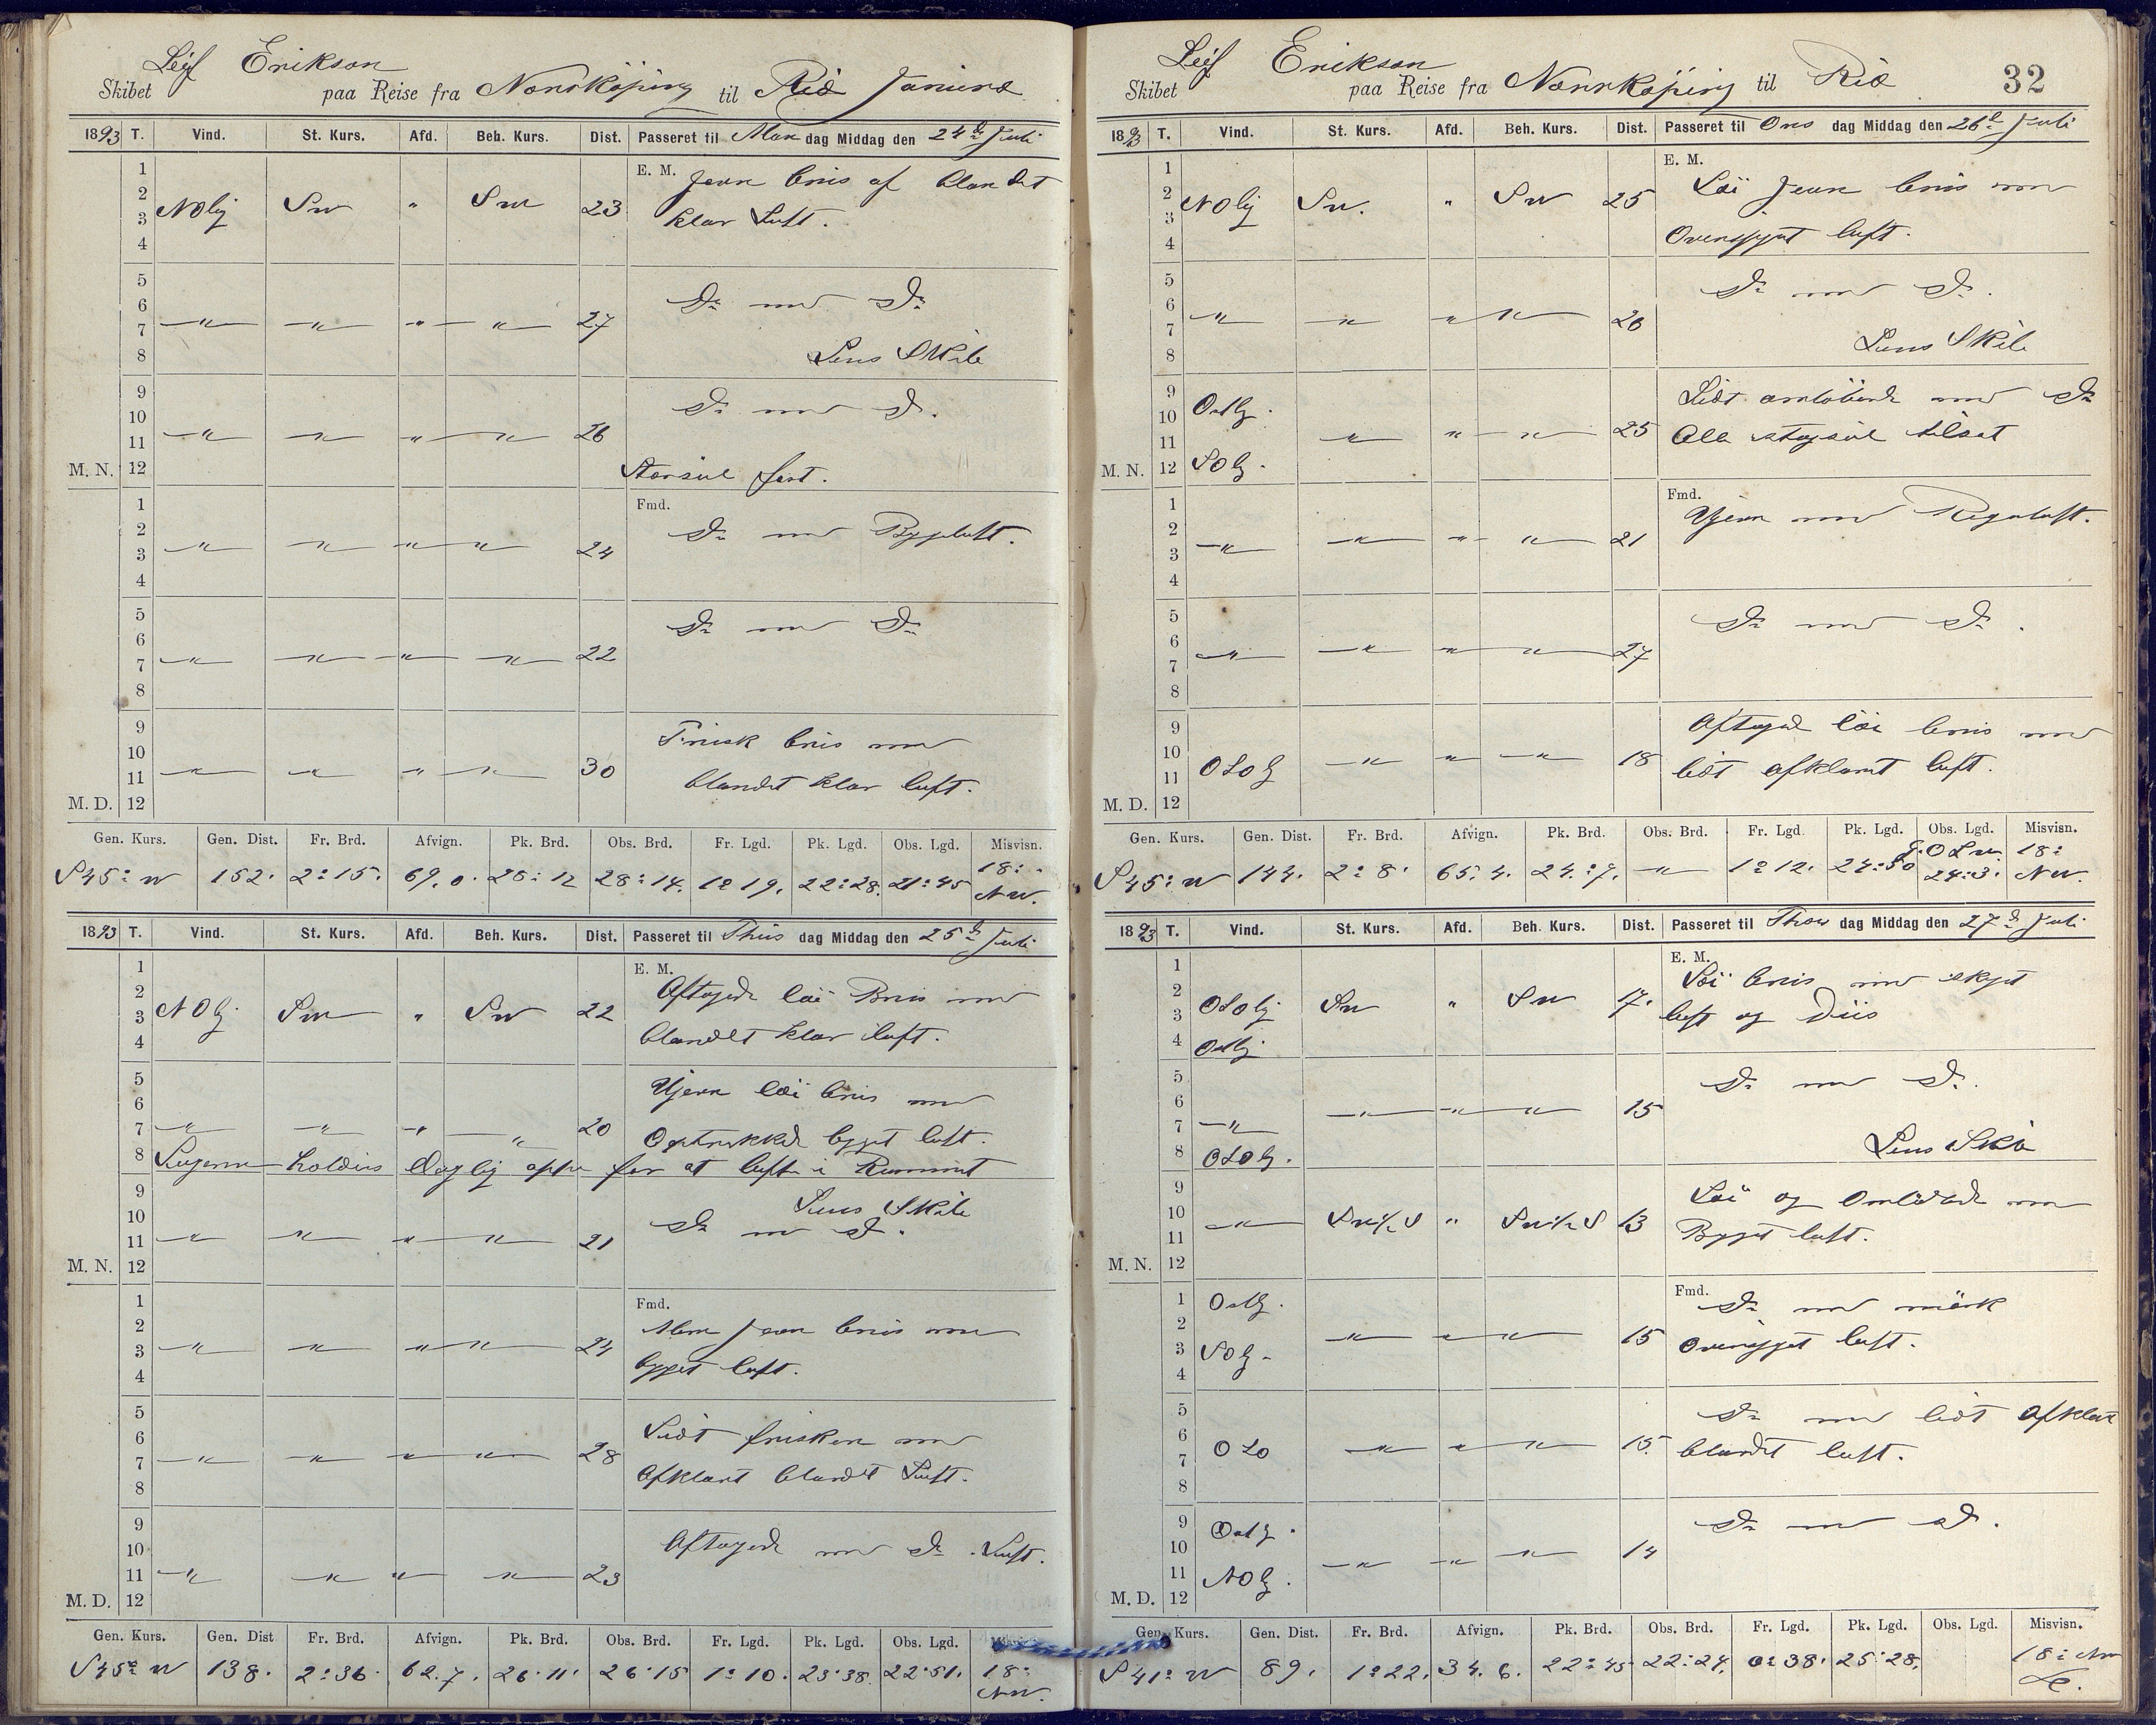 Leif Erikson
Skibet paa Reise fra Norrköping til Rio Janiero
1893 T. Vind. St. Kurs. Afd. Beh. Kurs. Dist. Passeret til Man dag Middag den 24de Juli
1
2
3 NOlig SW " SW 23 E. M. Jevn bris af blandet
4 klar Luft.
5
6 Do med Do
7 " " " " 27
8 Lens Skib
9
10 Do med Do.
11 " " " " 26
M. N. 12 Storseil fast.
1 Fmd.
2 Do med Bygeluft.
3 " " " " 24
4
5
6 Do med Do
7 " " " " 22
8
9
10 Frisk bris med
11 " " " " 30 blandet klar luft.
M. D. 12
Gen. Kurs. Gen. Dist. Fr. Brd. Afvign. Pk. Brd. Obs. Brd. Fr. Lgd. Pk. Lgd. Obs. Lgd. Misvisn.
S45° W 152. 2°15. 69.0. 28°12 28°14. 1°19. 22°28. 21°45 18° NW.
1893 T. Vind. St. Kurs. Afd. Beh. Kurs. Dist. Passeret til Thirs dag Middag den 25de Juli
1 E. M.
2 Aftagende löi Bris med
3 NOlg. SW " SW 22
4 blandet klar luft.
5
6 Ujevn löi bris med
7 " " " " 20 Optrukket bygget luft.
8 Lugerne holdes daglig oppe for at lufte i Rummet
9 Lens Skib
10 Do med Do.
11 " " " " 21
M. N. 12
1 Fmd.
2 Mere jevn bris med
3 " " " " 24
4 bygget luft.
5
6 Lidt friskere med
7 " " " " 28 Afklaret blandet Luft.
8
9
10 Aftagende med Do Luft.
11 " " " " 23
M. D. 12
Gen. Kurs. Gen. Dist Fr. Brd. Afvign. Pk. Brd. Obs. Brd. Fr. Lgd. Pk. Lgd. Obs. Lgd.
S45° W 138. 2°36. 62.7. 26°11. 26°15 1°10. 23°38. 22°51. 18° NW.
Leif Erikson
Skibet paa Reise fra Norrköping til Rio 32
1893 T. Vind. St. Kurs. Afd. Beh. Kurs. Dist. Passeret til Ons dag Middag den 26de Juli
1 E. M.
2 NOlig SW. " SW 25 Löi jevn bris med
3
4 Overskyet luft.
5
6 Do med Do.
7 " " " " 26
8 Lens Skib
9 Lidt omlöbende med Do
10 Ostlg.
11 " " " 25 Alle stagseil tilsat
M. N. 12 SOlg.
1 Fmd.
2 Ujevn med Regnluft.
3 " " " " 21
4
5
6 Do med Do.
7 " " " " 27
8
9 Aftagende löi bris med
10
11 OSOlg " " " 18 lidt afklaret luft.
M. D. 12
Gen. Kurs. Gen. Dist. Fr. Brd. Afvign. Pk. Brd. Obs. Brd. Fr. Lgd. Pk. Lgd. Obs. Lgd. Misvisn.
S45° W 144. 2°8. 65.4. 24°7. " 1°12. 24°50 24°3. 18° NW.
1893 T. Vind. St. Kurs. Afd. Beh. Kurs. Dist. Passeret til Thors dag Middag den 27de Juli
1 E. M.
2 Löi bris med skyet
3 OSOlig SW " SW 17. luft og Diis
4 Ostlig
5
6 Do med Do.
7 " " " " 15
8 OSOlg. Lens Skib
9
10 " SW½S " SW½S 13 Löi og Omlöbende med
11 Bygget luft.
M. N. 12
1 Ostlg. Fmd.
2 Do med mörk
3 SOlg. " " " 15 overskyet luft.
4
5
6 Do med lidt Afklart
7 OSO " " " 15. blandet luft.
8
9 Ostlg.
10 Do med Do.
11 NOlg. " " " 14
M. D. 12
Gen. Kurs. Gen. Dist. Fr. Brd. Afvign. Pk. Brd. Obs. Brd. Fr. Lgd. Pk. Lgd. Obs. Lgd. Misvisn.
S41° W 89. 1°22. 34.6. 22°45 22°24. 0°38. 25°28. 18° NW